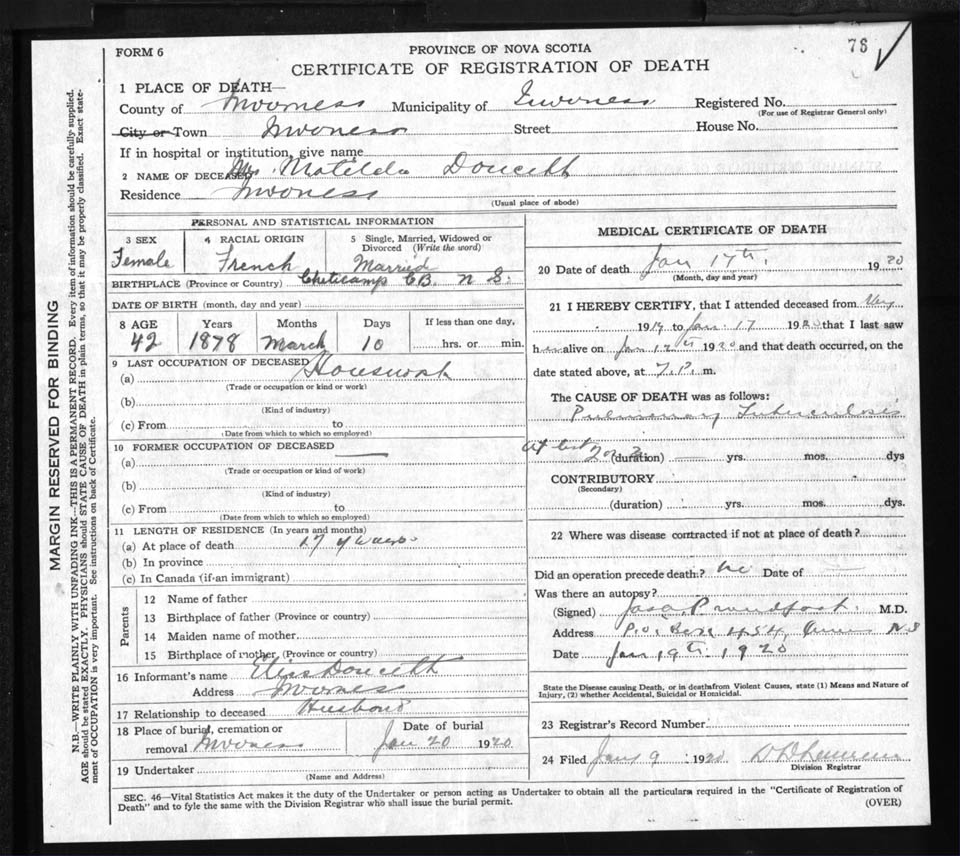 76
FORM 6
PROVINCE OF NOVA SCOTIA
CERTIFICATE OF REGISTRATION OF DEATH
1 PLACE OF DEATH—
County of Inverness Municipality of Inverness Registered No.
(For use of Registrar General only)
City or Town Inverness Street House No.
If in hospital or institution, give name
2 NAME OF DECEASED Mrs. Matilda Doucett
Residence Inverness
(Usual place of abode)
PERSONAL AND STATISTICAL INFORMATION
3 SEX 4 RACIAL ORIGIN 5 Single, Married, Widowed or
Divorced (Write the word)
Female French Married
BIRTHPLACE (Province or Country) Cheticamp C.B. N S.
DATE OF BIRTH (month, day and year)
8 AGE Years Months Days If less than one day,
42 1878 March 10 hrs. or min.
9 LAST OCCUPATION OF DECEASED
(a) Housework
(Trade or occupation or kind or work)
(b)
(Kind of industry)
(c) From to
(Date from which to which so employed)
10 FORMER OCCUPATION OF DECEASED
(a)
(Trade or occupation or kind of work)
(b)
(Kind of industry)
(c) From to
(Date from which to which so employed)
11 LENGTH OF RESIDENCE (In years and months)
(a) At place of death 17 years
(b) In province
(c) In Canada (if an immigrant)
Parents
12 Name of father
13 Birthplace of father (Province or country)
14 Maiden name of mother
15 Birthplace of mother, (Province or country)
16 Informant's name Doucett
Address Inverness
17 Relationship to deceased Husband
18 Place of burial, cremation or Date of burial
removal Inverness Jan 20 1920
19 Undertaker
(Name and Address)
MEDICAL CERTIFICATE OF DEATH
20 Date of death Jan 17th. 1920
(Month, day and year)
21 I HEREBY CERTIFY, that I attended deceased from
1919 to Jan. 17 1920 that I last saw
her alive on Jan 1920 and that death occurred, on the
date stated above, at 7. P. m.
The CAUSE OF DEATH was as follows:
Pulmonary Tuberculosis
(duration) yrs. mos. dys
CONTRIBUTORY
(Secondary)
(duration) yrs. mos. dys.
22 Where was disease contracted if not at place of death?
Did an operation precede death? no Date of
Was there an autopsy?
(Signed) Proudfoot. M.D.
Address P.O. Box 454, N S
Date Jan 19th. 1920
State the Disease causing Death, or in deathsfrom Violent Causes, state (1) Means and Nature of
Injury, (2) whether Accidental, Suicidal or Homicidal.
23 Registrar's Record Number
24 Filed 9 1920
Division Registrar
SEC. 46—Vital Statistics Act makes it the duty of the Undertaker or person acting as Undertaker to obtain all the particulars required in the "Certificate of Registration of
Death" and to fyle the same with the Division Registrar who shall issue the burial permit.
(OVER)
MARGIN RESERVED FOR BINDING
N.B.—WRITE PLAINLY WITH UNFADING INK—THIS IS A PERMANENT RECORD. Every item of information should be carefully supplied.
AGE should be stated EXACTLY. PHYSICIANS should STATE CAUSE OF DEATH in plain terms, so that it may be properly classified. Exact state-
ment of OCCUPATION is very important. See instructions on back of Certificate.